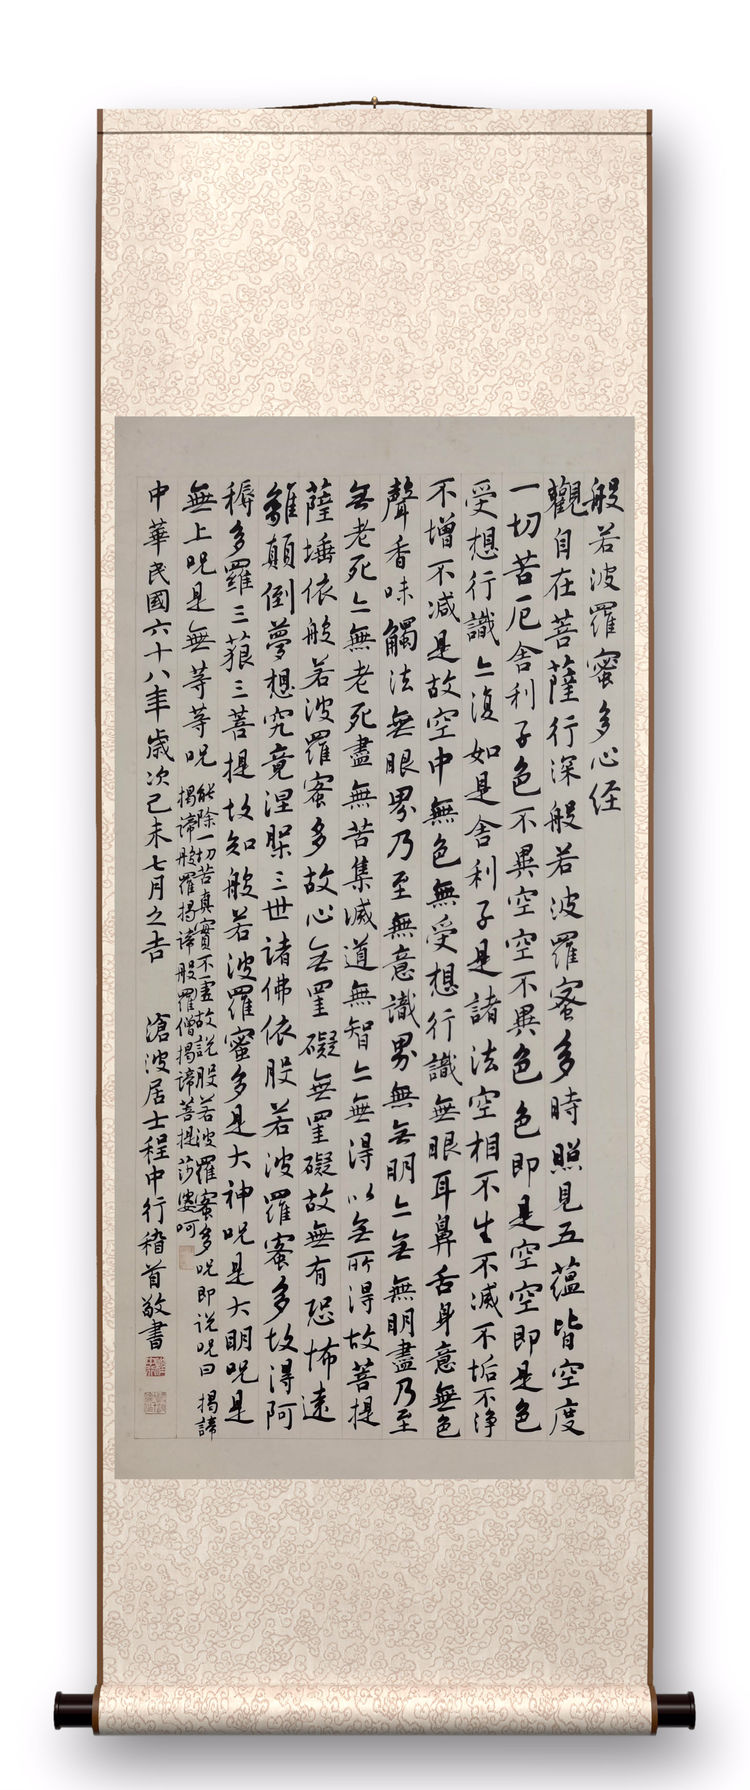 般若波羅蜜多心经
觀自在菩薩行深般若波羅蜜多時照見五蕴皆空度
一切苦厄舍利子色不異空空不異色色即是空空即是色
受想行識亦復如是舍利子是諸法空相不生不滅不垢不净
不增不减是故空中無色無受想行識無眼耳鼻舌身意無色
聲香味觸法無眼界乃至無意識界無无明亦无無明盡乃至
无老死亦無老死盡無苦集滅道無智亦無得以无所得故菩提
薩埵依般若波羅蜜多故心无罣礙無罣礙故無有恐怖遠
離顛倒夢想究竟涅槃三世諸佛依般若波羅蜜多故得阿
耨多羅三藐三菩提故知般若波羅蜜多是大神呪是大明呪是
無上呪是無等等呪
能除一切苦真實不虛故説般若波羅蜜多呪即说呪曰 揭諦
揭諦般羅揭諦般羅僧揭諦菩提莎婆呵
中華民國六十八年歲次己未七月之吉 滄波居士程中行稽首敬書